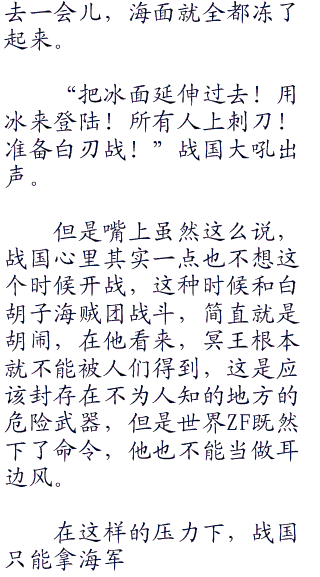 去一会儿，海面就全都冻了
起来。
“把冰面延伸过去！用
冰来登陆！所有人上刺刀！
准备白刃战！”战国大吼出
声。
但是嘴上虽然这么说，
战国心里其实一点也不想这
个时候开战，这种时候和白
胡子海贼团战斗，简直就是
胡闹，在他看来，冥王根本
就不能被人们得到，这是应
该封存在不为人知的地方的
危险武器，但是世界ZF既然
下了命令，他也不能当做耳
边风。
在这样的压力下，战国
只能拿海军